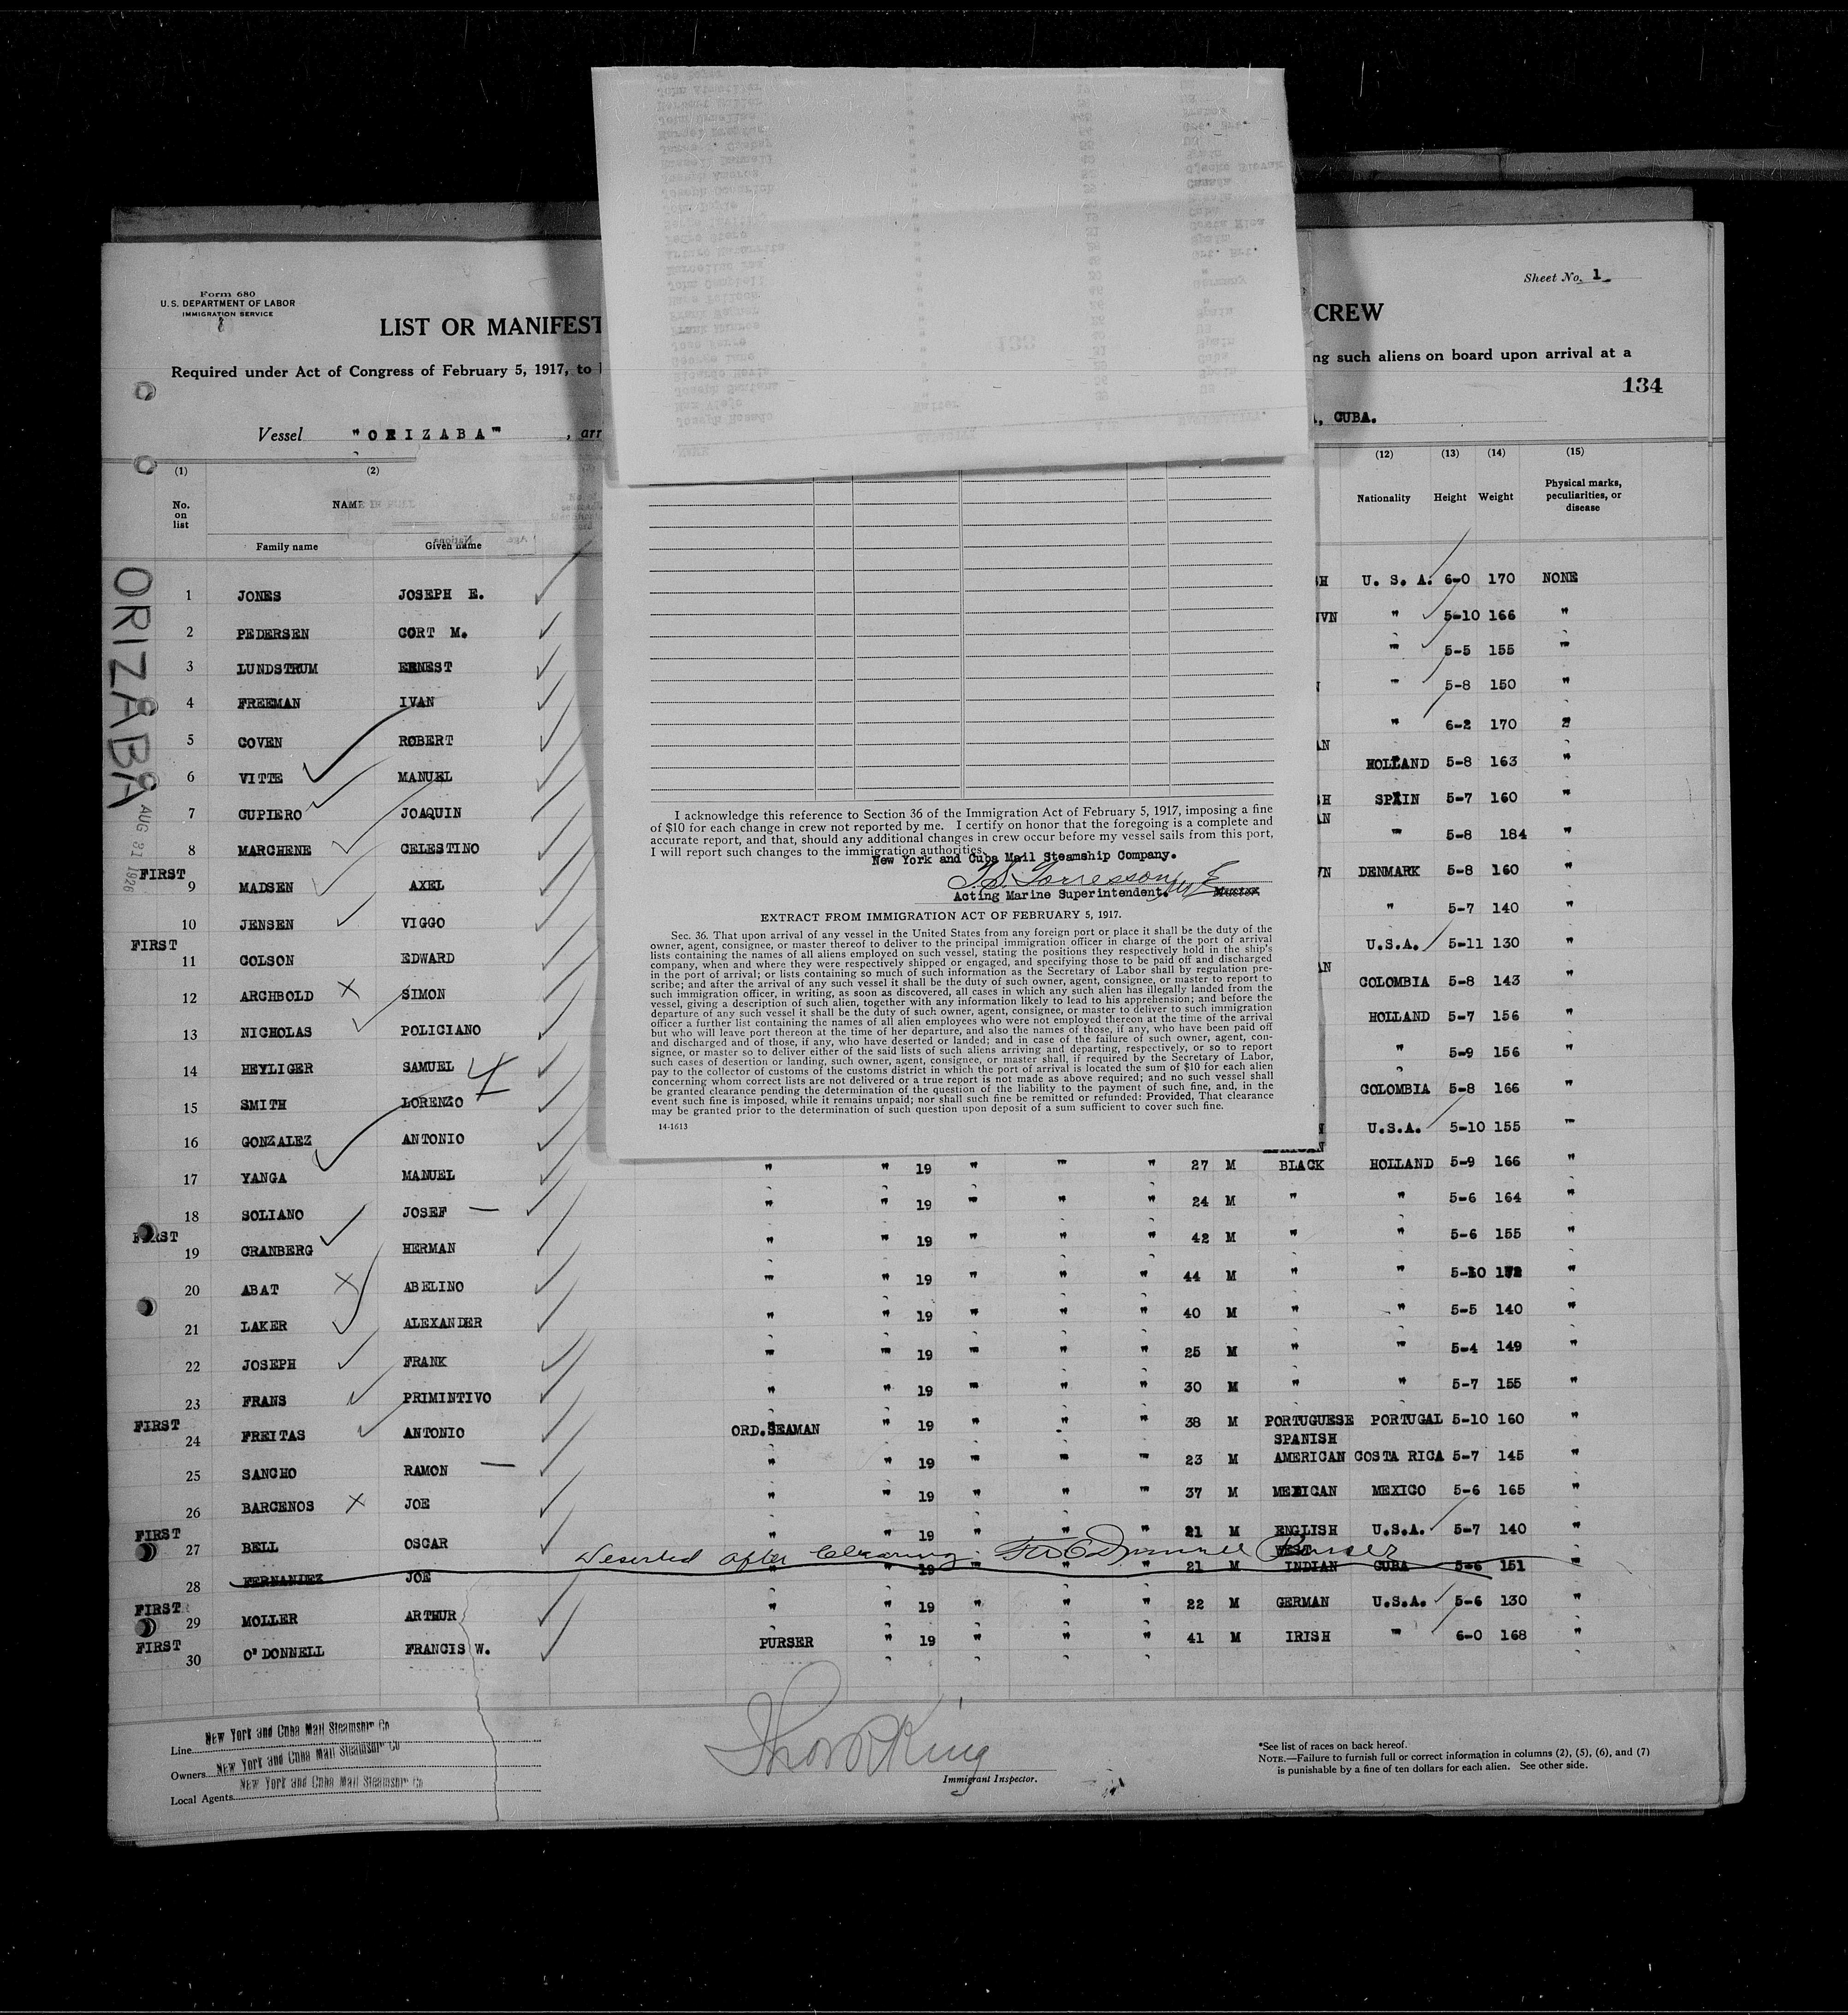 Form 680
U.S. DEPARTMENT OF LABOR
IMMIGRATION SERVICE
Sheet No. 1
LIST OR MANIFEST
CREW
Required under Act of Congress of February 5, 1917, to
ng such aliens on board upon arrival at a
134
Vessel "ORIZABA", arr
, CUBA.
(1) (2) (12) (13) (14) (15)
No. on list NAME IN FULL Nationality Height Weight Physical marks, peculiarities, or disease
Family name Given name
ORIZABA
AUG 31 1926
1 JONES JOSEPH E. SH U. S. A. 6-0 170 NONE
2 PEDERSEN CORT M. NVN " 5-10 166 "
3 LUNDSTRUM ERNEST " 5-5 155 "
4 FREEMAN IVAN " 5-8 150 "
5 COVEN ROBERT " 6-2 170 "
6 VITTE MANUEL AN HOLLAND 5-8 163 "
7 CUPIERO JOAQUIN SH SPAIN 5-7 160 "
8 MARCHENE CELESTINO AN " 5-8 184 "
FIRST
9 MADSEN AXEL VN DENMARK 5-8 160 "
10 JENSEN VIGGO " 5-7 140 "
FIRST
11 COLSON EDWARD U.S.A. 5-11 130 "
12 ARCHBOLD X SIMON AN COLOMBIA 5-8 143 "
13 NICHOLAS POLICIANO HOLLAND 5-7 156 "
14 HEYLIGER SAMUEL " 5-9 156 "
15 SMITH LORENZO COLOMBIA 5-8 166 "
16 GONZALEZ ANTONIO U.S.A. 5-10 155 "
17 YANGA MANUEL " " 19 " " " 27 M BLACK HOLLAND 5-9 166 "
18 SOLIANO JOSEF — " " 19 " " " 24 M " " 5-6 164 "
FIRST
19 CRANBERG HERMAN " " 19 " " " 42 M " " 5-6 155 "
20 ABAT X ABELINO " " 19 " " " 44 M " " 5-10 172 "
21 LAKER ALEXANDER " " 19 " " " 40 M " " 5-5 140 "
22 JOSEPH FRANK " " 19 " " " 25 M " " 5-4 149 "
23 FRANS PRIMINTIVO " " 19 " " " 30 M " " 5-7 155 "
FIRST
24 FREITAS ANTONIO ORD.SEAMAN " 19 " " " 38 M PORTUGUESE PORTUGAL 5-10 160 "
25 SANCHO RAMON — " " 19 " " " 23 M SPANISH AMERICAN COSTA RICA 5-7 145 "
26 BARCENOS X JOE " " 19 " " " 37 M MEXICAN MEXICO 5-6 165 "
FIRST
27 BELL OSCAR " " 19 " " " 21 M ENGLISH U.S.A. 5-7 140 "
Deserted after Clearing. FW O'Donnell Purser
28 FERNANDEZ JOE " " 19 " " " 21 M WEST INDIAN CUBA 5-6 151 "
FIRST
29 MOLLER ARTHUR " " 19 " " " 22 M GERMAN U.S.A. 5-6 130 "
FIRST
30 O'DONNELL FRANCIS W. PURSER " 19 " " " 41 M IRISH " 6-0 168 "
I acknowledge this reference to Section 36 of the Immigration Act of February 5, 1917, imposing a fine
of $10 for each change in crew not reported by me. I certify on honor that the foregoing is a complete and
accurate report, and that, should any additional changes in crew occur before my vessel sails from this port,
I will report such changes to the immigration authorities.
New York and Cuba Mail Steamship Company.
Acting Marine Superintendent. Master
EXTRACT FROM IMMIGRATION ACT OF FEBRUARY 5, 1917.
Sec. 36. That upon arrival of any vessel in the United States from any foreign port or place it shall be the duty of the
owner, agent, consignee, or master thereof to deliver to the principal immigration officer in charge of the port of arrival
lists containing the names of all aliens employed on such vessel, stating the positions they respectively hold in the ship's
company, when and where they were respectively shipped or engaged, and specifying those to be paid off and discharged
in the port of arrival; or lists containing so much of such information as the Secretary of Labor shall by regulation pre-
scribe; and after the arrival of any such vessel it shall be the duty of such owner, agent, consignee, or master to report to
such immigration officer, in writing, as soon as discovered, all cases in which any such alien has illegally landed from the
vessel, giving a description of such alien, together with any information likely to lead to his apprehension; and before the
departure of any such vessel it shall be the duty of such owner, agent, consignee, or master to deliver to such immigration
officer a further list containing the names of all alien employees who were not employed thereon at the time of the arrival
but who will leave port thereon at the time of her departure, and also the names of those, if any, who have been paid off
and discharged and of those, if any, who have deserted or landed; and in case of the failure of such owner, agent, con-
signee, or master so to deliver either of the said lists of such aliens arriving and departing, respectively, or so to report
such cases of desertion or landing, such owner, agent, consignee, or master shall, if required by the Secretary of Labor,
pay to the collector of customs of the customs district in which the port of arrival is located the sum of $10 for each alien
concerning whom correct lists are not delivered or a true report is not made as above required; and no such vessel shall
be granted clearance pending the determination of the question of the liability to the payment of such fine, and, in the
event such fine is imposed, while it remains unpaid; nor shall such fine be remitted or refunded: Provided, That clearance
may be granted prior to the determination of such question upon deposit of a sum sufficient to cover such fine.
14-1613
Line New York and Cuba Mail Steamship Co
Owners New York and Cuba Mail Steamship Co
Local Agents New York and Cuba Mail Steamship Co
Immigrant Inspector.
*See list of races on back hereof.
NOTE.—Failure to furnish full or correct information in columns (2), (5), (6), and (7)
is punishable by a fine of ten dollars for each alien. See other side.